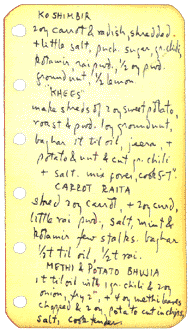 KOSHIMBIR
2oz carrot & radish, shredded.
+ little salt, pnch sugar, gr. chili
kotamir, rai pwd., ½ oz pwd.
groundnut ½ lemon
"KHEES"
make shreds of 2oz sweet potato,
roast & pwd. 1oz groundnut,
baghar it til oil, jeera, +
potato & nut & cut gr. chili
+ salt. mix over, cook 5-7".
CARROT RAITA
shred 2oz carrot, + 2oz curd,
little rai pwd, salt, mint &
kotamir few stalks. baghar
½t til oil, ½t rai.
METHI & POTATO BHUJIA
1t til oil with 1 gr. chili & 2oz
onion, fry 2", + 4oz methi leaves
chopped & 2oz potato cut in chips,
salt, cook tender